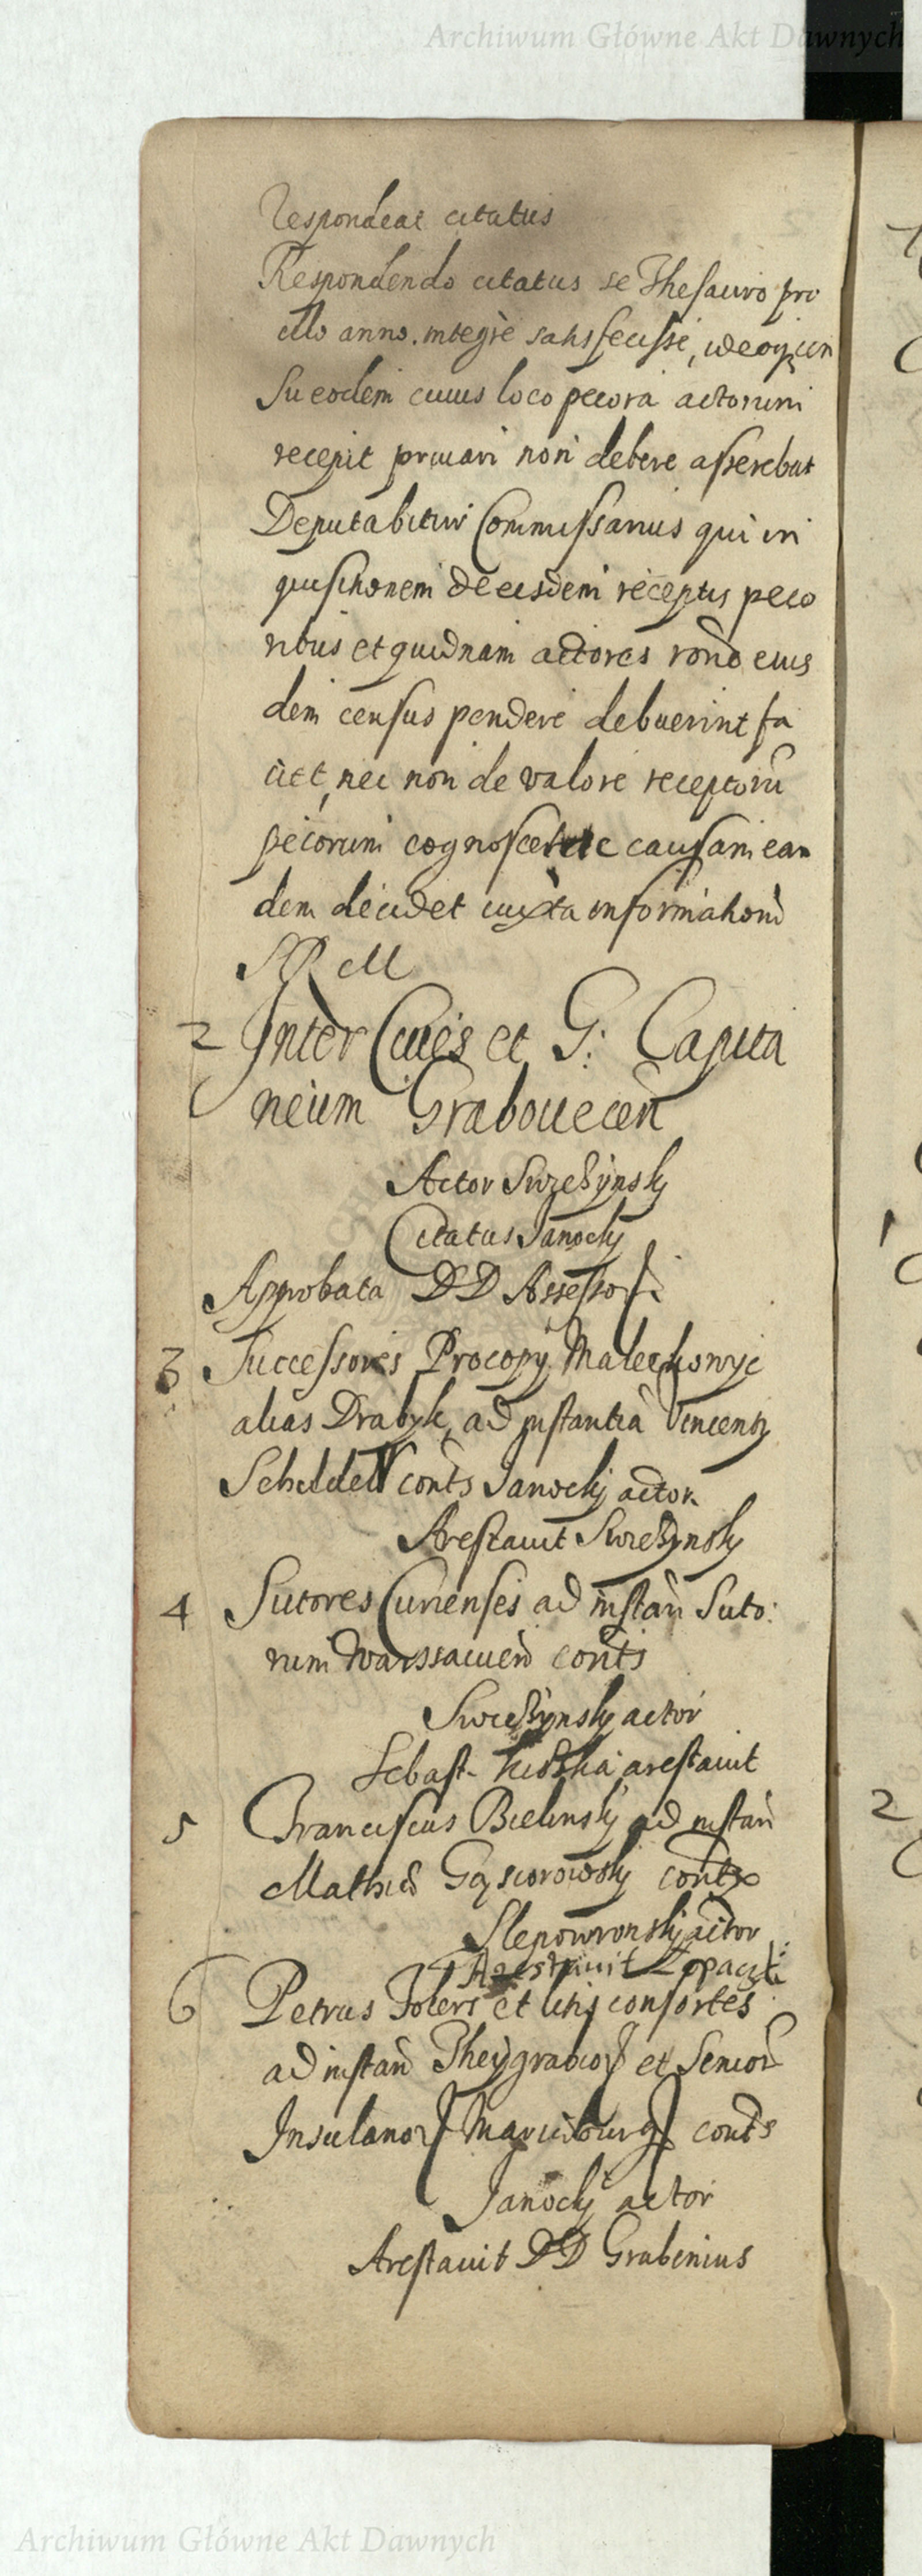 Archiwum Główne Akt Dawnych
Respondeat citatus
Respondendo citatus se Thesauro pro
illo anno integre satisfecisse, ideoq cen
su eodem cuius loco pecora actorum
recepit privari non debere asserebat
Deputabitur Commissarius qui in
quisitionem de eisdem receptis peco
ribus et quidnam actores rone eius
dem census pendere debuerint fa
ciet, nec non de valore receptoru
pecorum cognoscet ac causam ean
dem decidet iuxta informationem
S R M
2 Inter Cives et G: Capita
neum Grabovecen
Actor Swiezynsky
Citatus Janocky
Approbata DD Assessor
3 Successores Procopy Malechowic
alias Drabyk, ad instantia Vincenty
conts Janocky actor
Arestavit Swiezynsky
4 Sutores Curienses ad instan Suto:
rum Warssavien conts
Swiezynsky actor
Sebast. arestavit
5 Franciscus Bielinsky ad instan
Mathiæ Gąsiorowsky contx
Slepowronsky actor
Arestavit Lopacki
6 Petrus Folers et litis consortes
ad instan Theygravior et Senior
Insulanor Marieburg conts
Janocky actor
Arestavit DD Grabinius
2
Archiwum Główne Akt Dawnych